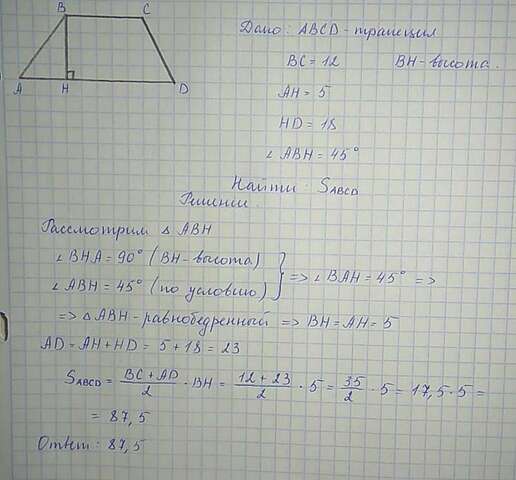 B C
A H D
Дано: ABCD - трапеция
BC = 12 BH - высота.
AH = 5
HD = 18
∠ ABH = 45°
Найти: SABCD
Решение.
Рассмотрим △ ABH
∠ BHA = 90° (BH - высота)
∠ ABH = 45° (по условию) } => ∠ BAH = 45° =>
=> △ ABH - равнобедренный => BH = AH = 5
AD = AH + HD = 5 + 18 = 23
SABCD = (BC + AD)/2 · BH = (12 + 23)/2 · 5 = 35/2 · 5 = 17,5 · 5 =
= 87,5
Ответ: 87,5